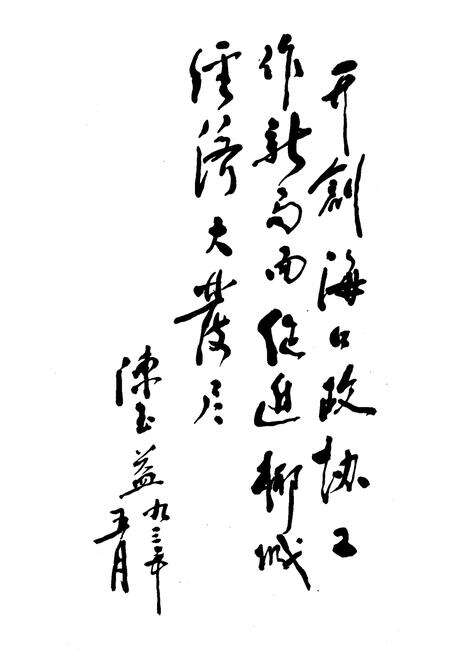 开創海口政协工
作新局面促進椰城
经济大發展
陳玉益
九三年
五月